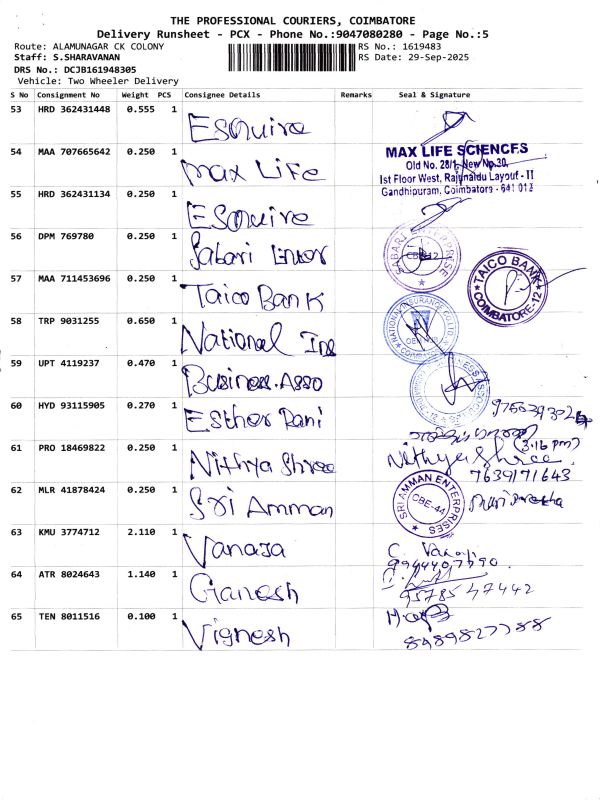 THE PROFESSIONAL COURIERS, COIMBATORE
Delivery Runsheet - PCX - Phone No.:9047080280 - Page No.:5
Route: ALAMUNAGAR CK COLONY RS No.: 1619483
Staff: S.SHARAVANAN RS Date: 29-Sep-2025
DRS No.: DCJB161948305
Vehicle: Two Wheeler Delivery
S No Consignment No Weight PCS Consignee Details Remarks Seal & Signature
53 HRD 362431448 0.555 1 Esquire
54 MAA 707665642 0.250 1 Max Life
MAX LIFE SCIENCES
Old No. 28/1, New No.30,
1st Floor West, Rajunaidu Layout - II
Gandhipuram, Coimbatore - 641 012
55 HRD 362431134 0.250 1 Esquire
56 DPM 769780 0.250 1 Sabari Enter
SABARI ENTERPRISE
CBE-12
57 MAA 711453696 0.250 1 Taico Bank
TAICO BANK
COIMBATORE-12
58 TRP 9031255 0.650 1 National Ins
NATIONAL INSURANCE CO LTD
COIMBATORE
59 UPT 4119237 0.470 1 Business.Asso
60 HYD 93115905 0.270 1 Esther Rani
61 PRO 18469822 0.250 1 Nithya Shree
Nithya Shree (3.16 pm)
7639171643
62 MLR 41878424 0.250 1 Sri Amman
SRI AMMAN ENTERPRISES
CBE-44
63 KMU 3774712 2.110 1 Vanaja
C. Vanaja
64 ATR 8024643 1.140 1 Ganesh
95785 47442
65 TEN 8011516 0.100 1 Vignesh
8489827788